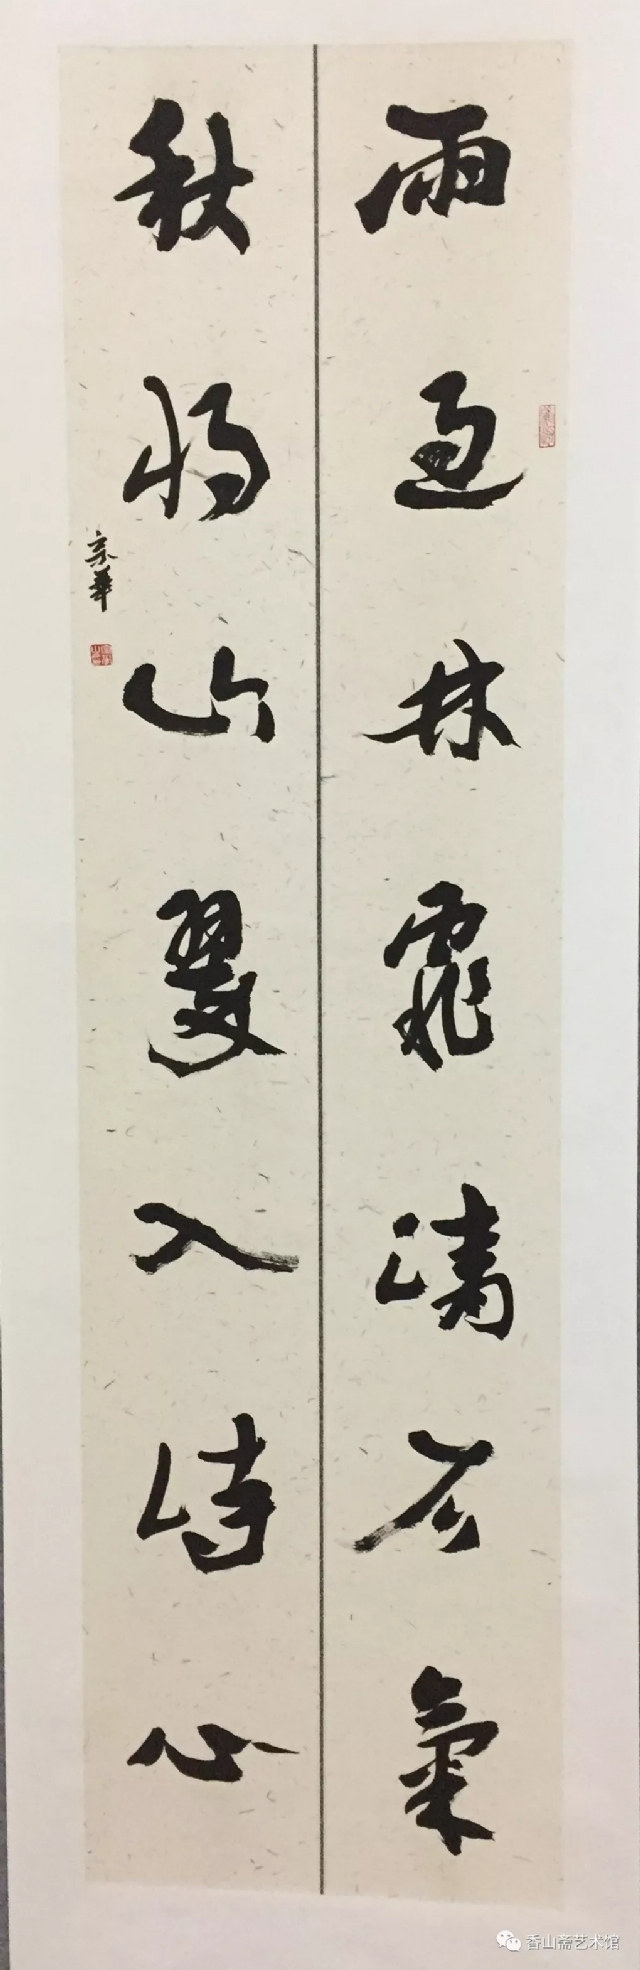 雨過林霏清石氣
秋將山翠入詩心
宗華
香山斋艺术馆